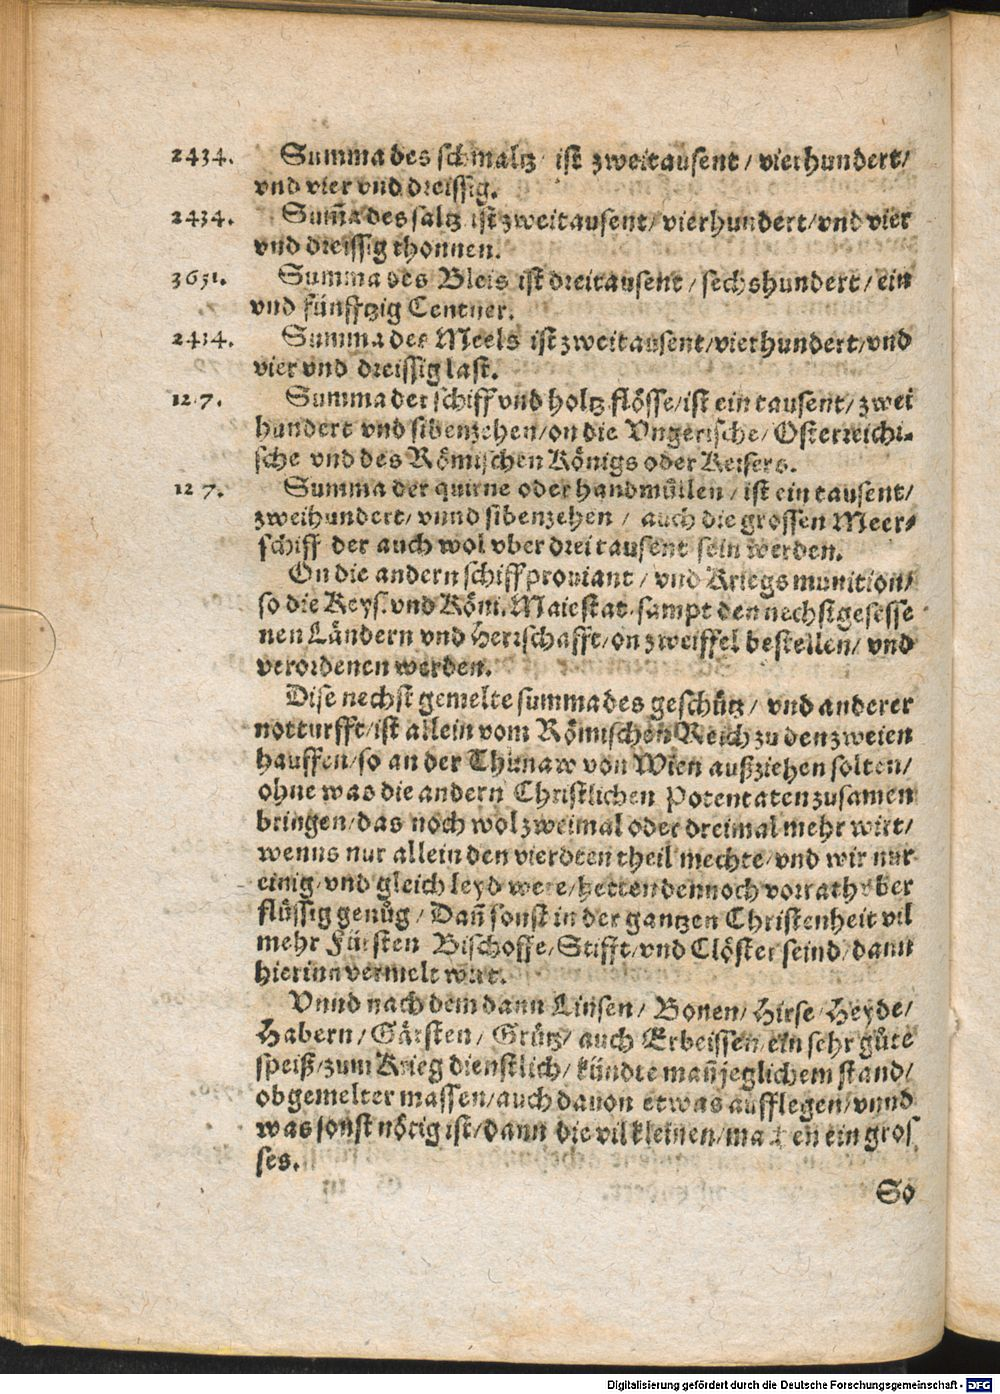 2434. Summa des schmaltz ist zweitausent / vierhundert /
vnd vier vnd dreissig.
2434. Sum̃a des saltz ist zweitausent / vierhundert / vnd vier
vnd dreissig thonnen.
3651. Summa des Bleis ist dreitausent / sechshundert / ein
vnd fünfftzig Centner.
2434. Summa des Meels ist zweitausent / vierhundert / vnd
vier vnd dreissig last.
12 7. Summa der schiff vnd holtz flösse / ist ein tausent / zwei
hundert vnd sibenzehen / on die Vngerische / Osterreichi-
sche vnd des Römischen Königs oder Keisers.
12 7. Summa der quirne oder handmüllen / ist ein tausent /
zweihundert / vnnd sibenzehen / auch die grossen Meer-
schiff der auch wol vber drei tausent sein werden.
On die andern schiff prouiant / vnd Kriegs munition /
so die Keys. vnd Röm. Maiestat sampt den nechstgesesse
nen Ländern vnd Herrschafft / on zweiffel bestellen / vnd
verordenen werden.
Dise nechst gemelte summa des geschütz / vnd anderer
notturfft / ist allein vom Römischen Reich zu den zweien
hauffen / so an der Thunaw von Wien außziehen solten /
ohne was die andern Christlichen Potentaten zusamen
bringen / das noch wol zweimal oder dreimal mehr wirt /
wenns nur allein den vierdten theil mechte / vnd wir nur
einig / vnd gleich leyd were / hetten dennoch vorrath vber
flüssig genůg / Dañ sonst in der gantzen Christenheit vil
mehr Fürsten Bischoffe / Stifft / vnd Clöster seind / dann
hierinn vermelt wirt.
Vnnd nach dem dann Linsen / Bonen / Hirse / Heyde /
Habern / Gärsten / Grütz / auch Erbeissen / ein sehr gůte
speiß / zum Krieg dienstlich / kündte mañ jeglichem stand /
obgemelter massen / auch dauon etwas aufflegen / vnnd
was sonst nötig ist / dann die vil kleinen / machen ein gros
ses.
So
Digitalisierung gefördert durch die Deutsche Forschungsgemeinschaft - DFG